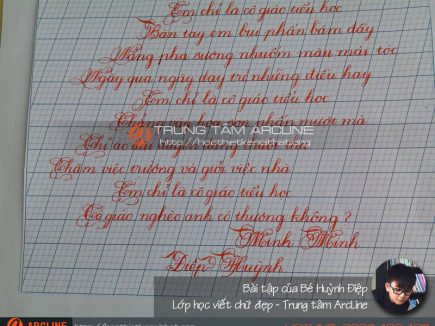 Em chỉ là cô giáo tiểu học
Bàn tay em bụi phấn bám đầy
Nắng pha sương nhuốm màu mái tóc
Ngày qua ngày dạy trẻ những điều hay
Em chỉ là cô giáo tiểu học
Chẳng văn hoa son phấn mượt mà
TRUNG TÂM ARCLINE
Chỉ áo dài
Chăm việc trường và giỏi việc nhà
Em chỉ là cô giáo tiểu học
Cô giáo nghèo anh có thương không?
Minh Minh
Điệp Huỳnh
Bài tập của Bé Huỳnh Điệp
Lớp học viết chữ đẹp - Trung tâm Arcline
ARCLINE